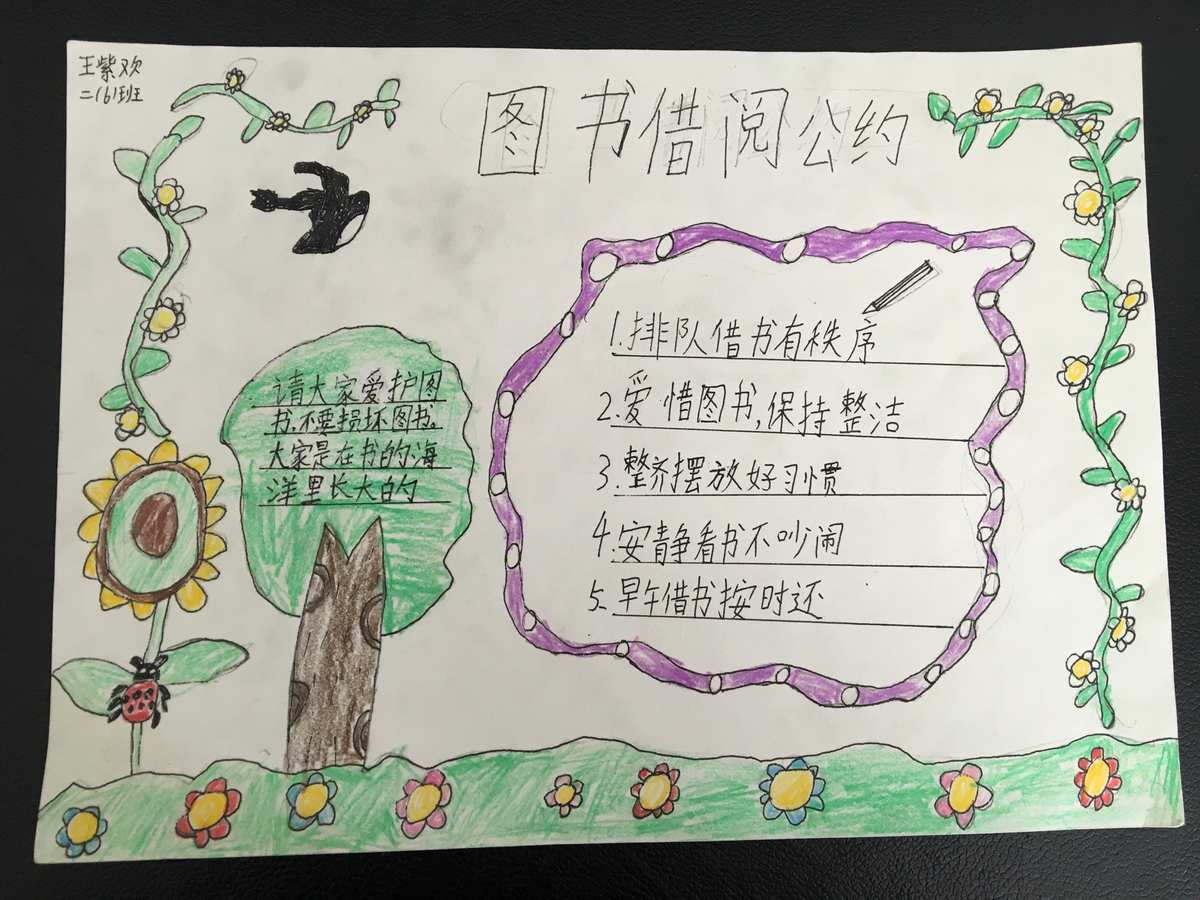 王紫欢
二(6)班
图书借阅公约
请大家爱护图
书.不要损坏图书。
大家是在书的海
洋里长大的
1.排队借书有秩序
2.爱惜图书,保持整洁
3.整齐摆放好习惯
4.安静看书不吵闹
5.早午借书按时还